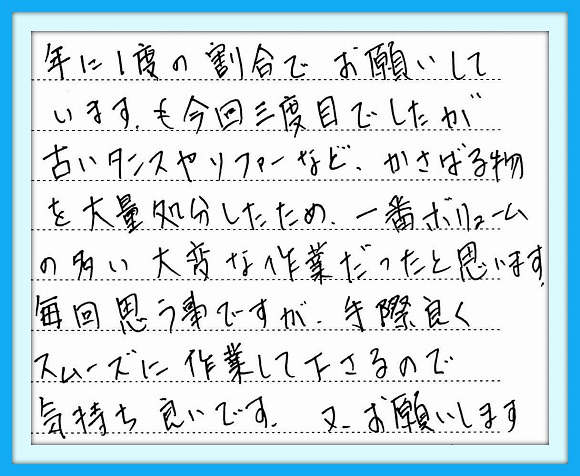 年に1度の割合でお願いして
います。も今回三度目でしたが
古いタンスやソファーなど、かさばる物
を大量処分したため、一番ボリューム
の多い大変な作業だったと思います。
毎回思う事ですが、手際良く
スムーズに作業して下さるので
気持ち良いです。又、お願いします